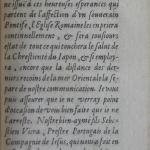 ne issuë de ces heureuses esperances qui
partent de l'affection d'un souuerain
Pontife, l'Eglise Romaine les en jouira
continuellement, & sera tousiours
estat de tout ce qui touchera le salut de
la Chrestienté du Iapon, & si empes-
chera, encore que la distance des der-
niers recoins de la mer Orientale la se-
pare de nostre communication. Ie vous
puis asseurer que ie ne verray point
d'occasion de vous bien faire que ie ne
l'arreste. Nostre bien-aymé fils Seba-
stien Viera, Prestre Portugais de la
Compagnie de Iesus, qui nous a fait en